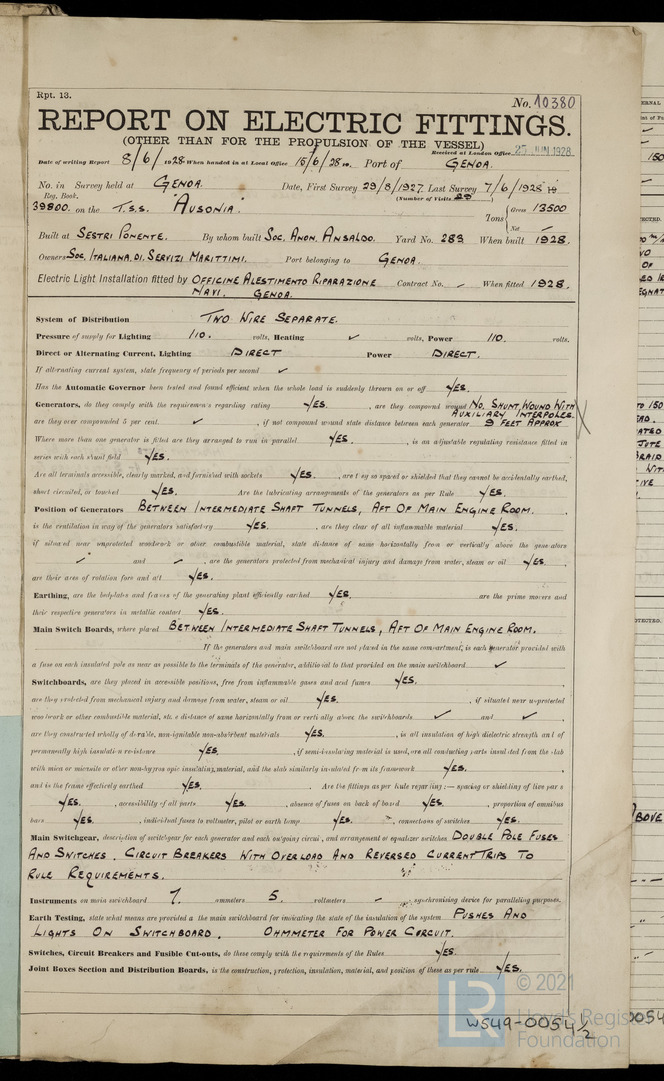 Rpt. 13.
No. 10380
REPORT ON ELECTRIC FITTINGS.
(OTHER THAN FOR THE PROPULSION OF THE VESSEL)
Received at London Office 25 JUN 1928
Date of writing Report 8/6/1928 When handed in at Local Office 15/6/28 Port of GENOA.
No. in Survey held at GENOA. Date, First Survey 29/8/1927 Last Survey 7/6/1928
Reg. Book. (Number of Visits
39800. on the T.S.S. "AUSONIA". Tons { Gross 13500
Net -
Built at SESTRI PONENTE. By whom built SOC. ANON. ANSALDO. Yard No. 289 When built 1928.
Owners SOC. ITALIANA. DI. SERVIZI MARITTIMI. Port belonging to GENOA.
Electric Light Installation fitted by OFFICINE ALESTIMENTO RIPARAZIONE Contract No. - When fitted 1928.
NAVI. GENOA.
System of Distribution TWO WIRE SEPARATE.
Pressure of supply for Lighting 110. volts, Heating ✓ volts, Power 110. volts.
Direct or Alternating Current, Lighting DIRECT Power DIRECT.
If alternating current system, state frequency of periods per second ✓
Has the Automatic Governor been tested and found efficient when the whole load is suddenly thrown on or off YES.
Generators, do they comply with the requirements regarding rating YES. , are they compound wound NO. SHUNT WOUND WITH
AUXILIARY INTERPOLES.
are they over compounded 5 per cent. ✓ , if not compound wound state distance between each generator 9 FEET APPROX
Where more than one generator is fitted are they arranged to run in parallel YES. , is an adjustable regulating resistance fitted in
series with each shunt field YES.
Are all terminals accessible, clearly marked, and furnished with sockets YES. , are they so spaced or shielded that they cannot be accidentally earthed,
short circuited, or touched YES. Are the lubricating arrangements of the generators as per Rule YES.
Position of Generators BETWEEN INTERMEDIATE SHAFT TUNNELS, AFT OF MAIN ENGINE ROOM.
is the ventilation in way of the generators satisfactory YES. , are they clear of all inflammable material YES.
if situated near unprotected woodwork or other combustible material, state distance of same horizontally from or vertically above the generators
✓ and ✓ , are the generators protected from mechanical injury and damage from water, steam or oil YES.
are their axes of rotation fore and aft YES.
Earthing, are the bedplates and frames of the generating plant efficiently earthed YES. are the prime movers and
their respective generators in metallic contact YES.
Main Switch Boards, where placed BETWEEN INTERMEDIATE SHAFT TUNNELS, AFT OF MAIN ENGINE ROOM.
If the generators and main switchboard are not placed in the same compartment, is each generator provided with
a fuse on each insulated pole as near as possible to the terminals of the generator, additional to that provided on the main switchboard ✓
Switchboards, are they placed in accessible positions, free from inflammable gases and acid fumes YES.
are they protected from mechanical injury and damage from water, steam or oil YES. , if situated near unprotected
woodwork or other combustible material, state distance of same horizontally from or vertically above the switchboards ✓ and ✓ ,
are they constructed wholly of durable, non-ignitable non-absorbent materials YES. , is all insulation of high dielectric strength and of
permanently high insulation resistance YES. , if semi-insulating material is used, are all conducting parts insulated from the slab
with mica or micanite or other non-hygroscopic insulating material, and the slab similarly insulated from its framework YES.
and is the frame effectively earthed YES. Are the fittings as per Rule regarding:— spacing or shielding of live parts
YES. , accessibility of all parts YES. , absence of fuses on back of board YES. , proportion of omnibus
bars YES. , individual fuses to voltmeter, pilot or earth lamp YES. , connections of switches YES.
Main Switchgear, description of switchgear for each generator and each outgoing circuit, and arrangement of equalizer switches DOUBLE POLE FUSES
AND SWITCHES. CIRCUIT BREAKERS WITH OVERLOAD AND REVERSED CURRENT TRIPS TO
RULE REQUIREMENTS.
Instruments on main switchboard 7. ammeters 5. voltmeters - synchronising device for paralleling purposes.
Earth Testing, state what means are provided at the main switchboard for indicating the state of the insulation of the system PUSHES AND
LIGHTS ON SWITCHBOARD. OHMMETER FOR POWER CIRCUIT.
Switches, Circuit Breakers and Fusible Cut-outs, do these comply with the requirements of the Rules YES.
Joint Boxes Section and Distribution Boards, is the construction, protection, insulation, material, and position of these as per rule YES.
© 2021
LR
Lloyd's Register
Foundation
W549-0054 1/2